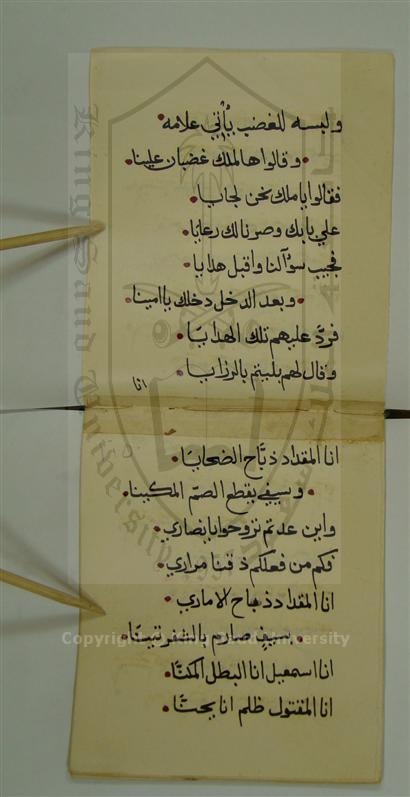 ولبسه للغضب يأتي علامه
وقالوا هالملك غضبان علينا
فقالوا يا ملك نحن لجايا
علي بابك وصرنا لك رعايا
فجيب سؤالنا واقبل هدايا
وبعد الدخل دخلك يا امينا
فردّ عليهم تلك الهدايا
وقال لهم بليتم بالرزايا
انا
انا المقداد ذبّاح الضحايا
وسيفي يقطع الصمّ المكينا
واين عدتم تروحوا يا نصاري
فكم من فعلكم ذقنا مراري
انا المقداد ذباح الاماري
بسيف صارم بالشفرتينا
انا اسمعيل انا البطل المكنّا
انا المقتول ظلم انا يحنّا
King Saud University
Copyright © King Saud University
1957